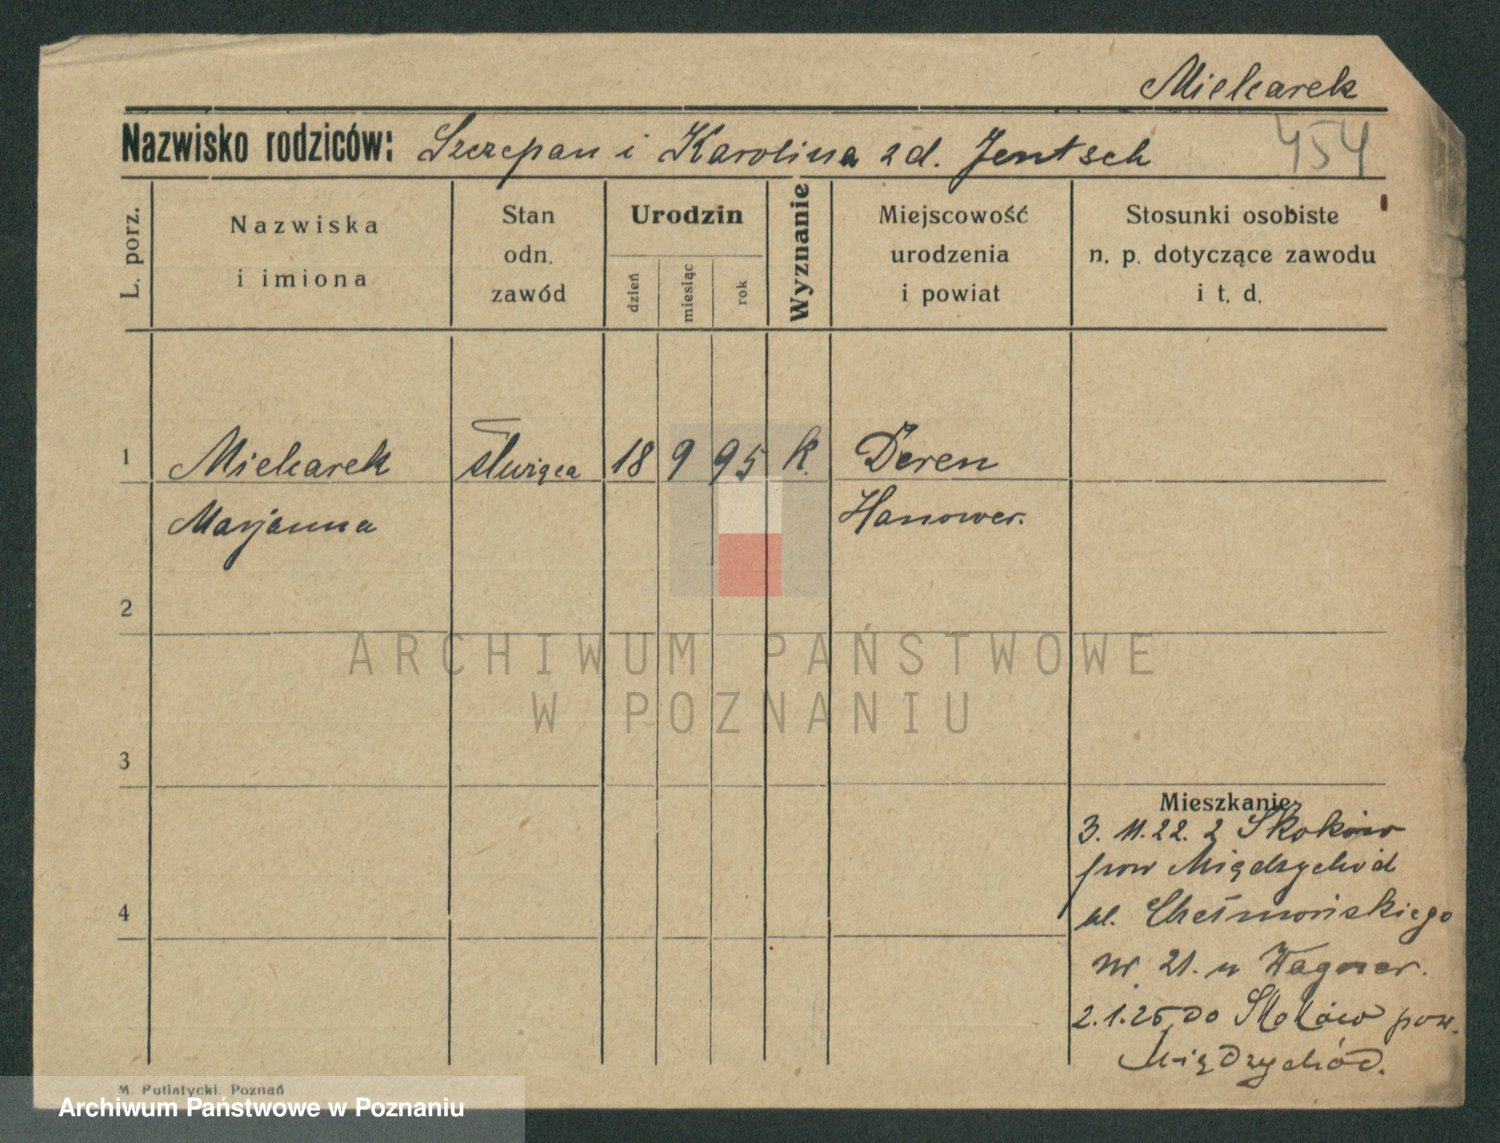 Mielcarek
Nazwisko rodziców: Szczepan i Karolina z d. Jentsch 454
L. porz.
Nazwiska
i imiona
Stan
odn.
zawód
Urodzin
dzień
miesiąc
rok
Wyznanie
Miejscowość
urodzenia
i powiat
Stosunki osobiste
n. p. dotyczące zawodu
i t. d.
1 Mielcarek służąca 18 9 95 k. Deren
Marjanna Hanower.
2
ARCHIWUM PAŃSTWOWE
W POZNANIU
3
Mieszkanie
3. 11. 22. z Skoków
pow Międzychód
ul. Chełmońskiego
nr 21. u Wagner.
4
2.1.25 do Skoków pow.
Międzychód.
M. Putiatycki, Poznań
Archiwum Państwowe w Poznaniu